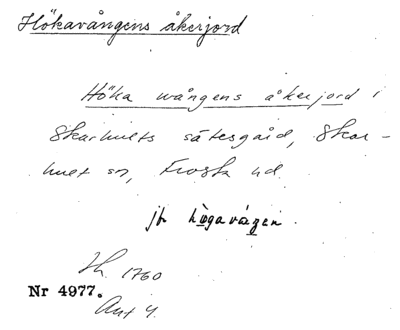 Hökavångens åkerjord
Höka wångens åkerjord i
Skarhults sätesgård, Skar-
hult sn, Frosta hd
jfr högavången.
Lh. 1760
Nr 4977.
Ant 4.